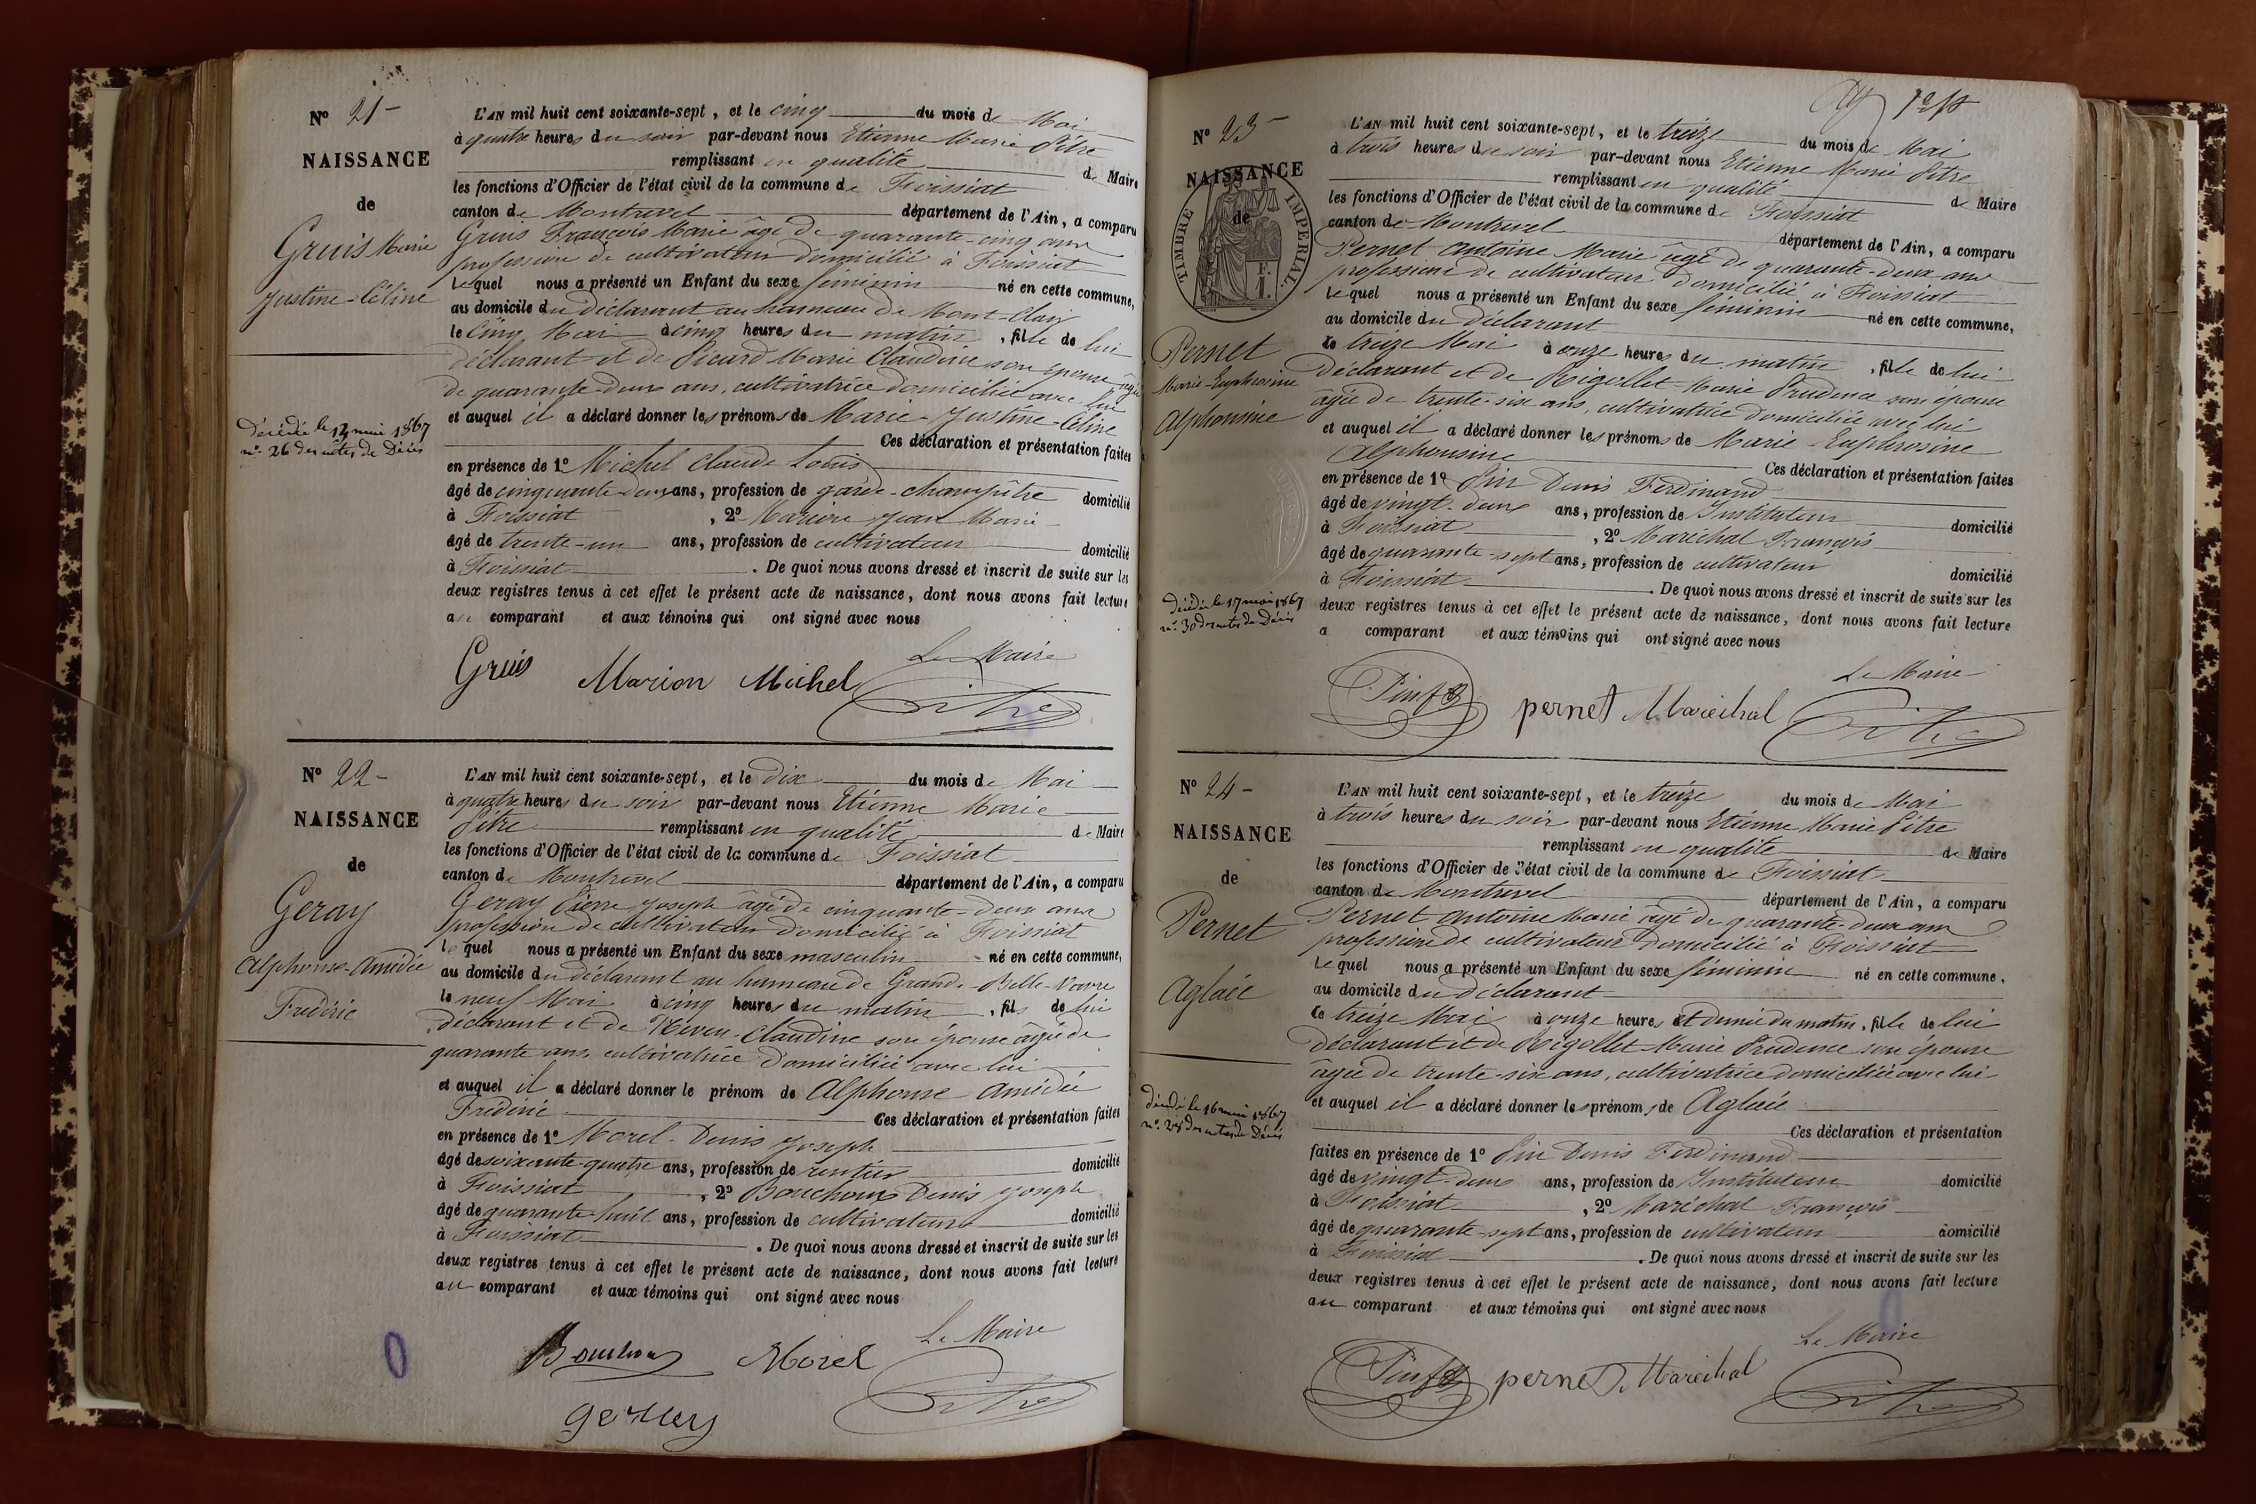 N° 21 -
NAISSANCE
de
Gruis Marie
Justine-Céline
Décédée le 14 mai 1867
n° 26 des actes de Décès
L'AN mil huit cent soixante-sept, et le cinq du mois de Mai
à quatre heures du soir par-devant nous Etienne Marie Pitre
remplissant en qualité de Maire
les fonctions d'Officier de l'état civil de la commune de Foissiat
canton de Montrevel département de l'Ain, a comparu
Gruis François Marie âgé de quarante-cinq ans
profession de cultivateur domicilié à Foissiat
lequel nous a présenté un Enfant du sexe féminin né en cette commune,
au domicile du déclarant au hameau de Mont-Clair
le cinq Mai à cinq heures du matin, fille de lui
déclarant et de Picard Marie Claudine son épouse âgée
de quarante-deux ans, cultivatrice domiciliée avec lui
et auquel il a déclaré donner les prénoms de Marie-Justine-Céline
Ces déclaration et présentation faites
en présence de 1° Michel Claude Louis
âgé de cinquante-deux ans, profession de garde-champêtre domicilié
à Foissiat, 2° Marion Jean Marie
âgé de trente-un ans, profession de cultivateur domicilié
à Foissiat. De quoi nous avons dressé et inscrit de suite sur les
deux registres tenus à cet effet le présent acte de naissance, dont nous avons fait lecture
au comparant et aux témoins qui ont signé avec nous
Le Maire
Gruis Marion Michel Pitre
N° 22 -
NAISSANCE
de
Geray
Alphonse-Amédée
Frédéric
L'AN mil huit cent soixante-sept, et le dix du mois de Mai
à quatre heures du soir par-devant nous Etienne Marie
Pitre remplissant en qualité de Maire
les fonctions d'Officier de l'état civil de la commune de Foissiat
canton de Montrevel département de l'Ain, a comparu
Geray Pierre Joseph âgé de cinquante-deux ans
profession de cultivateur domicilié à Foissiat
lequel nous a présenté un Enfant du sexe masculin né en cette commune,
au domicile du déclarant au hameau de Grande-Belle-Vavre
le neuf Mai à cinq heures du matin, fils de lui
déclarant et de Claudine son épouse âgée de
quarante ans cultivatrice domiciliée avec lui
et auquel il a déclaré donner le prénom de Alphonse Amédée
Frédéric Ces déclaration et présentation faites
en présence de 1° Morel Denis Joseph
âgé de soixante-quatre ans, profession de rentier domicilié
à Foissiat, 2° Bouchoux Denis Joseph
âgé de quarante-huit ans, profession de cultivateur domicilié
à Foissiat. De quoi nous avons dressé et inscrit de suite sur les
deux registres tenus à cet effet le présent acte de naissance, dont nous avons fait lecture
au comparant et aux témoins qui ont signé avec nous
Le Maire
Bouchoux Morel Pitre
geray
N° 23 -
NAISSANCE
de
TIMBRE IMPERIAL.
Pernet
Marie-Euphrosine
Alphonsine
Décédée le 17 mai 1867
n° 30 des actes de Décès
L'AN mil huit cent soixante-sept, et le treize du mois de Mai
à trois heures du soir par-devant nous Etienne Marie Pitre
remplissant en qualité de Maire
les fonctions d'Officier de l'état civil de la commune de Foissiat
canton de Montrevel département de l'Ain, a comparu
Pernet Antoine Marie âgé de quarante-deux ans
profession de cultivateur domicilié à Foissiat
lequel nous a présenté un Enfant du sexe féminin né en cette commune,
au domicile du déclarant
le treize Mai à onze heures du matin, fille de lui
déclarant et de Rigollet Marie Prudence son épouse
âgée de trente-six ans, cultivatrice domiciliée avec lui
et auquel il a déclaré donner les prénoms de Marie-Euphrosine
Alphonsine Ces déclaration et présentation faites
en présence de 1° Pin Denis Ferdinand
âgé de vingt-deux ans, profession de Instituteur domicilié
à Foissiat, 2° Maréchal François
âgé de quarante-sept ans, profession de cultivateur domicilié
à Foissiat. De quoi nous avons dressé et inscrit de suite sur les
deux registres tenus à cet effet le présent acte de naissance, dont nous avons fait lecture
a comparant et aux témoins qui ont signé avec nous
Le Maire
pernet Maréchal Pitre
N° 24 -
NAISSANCE
de
Pernet
Aglaée
décédée le 16 mai 1867
n° 28 des actes de Décès
L'AN mil huit cent soixante-sept, et le treize du mois de Mai
à trois heures du soir par-devant nous Etienne Marie Pitre
remplissant en qualité de Maire
les fonctions d'Officier de l'état civil de la commune de Foissiat
canton de Montrevel département de l'Ain, a comparu
Pernet Antoine Marie âgé de quarante-deux ans
profession de cultivateur domicilié à Foissiat
lequel nous a présenté un Enfant du sexe féminin né en cette commune.
au domicile du déclarant
le treize Mai à onze heures et demie du matin, fille de lui
déclarant et de Rigollet Marie Prudence son épouse
âgée de trente-six ans, cultivatrice domiciliée avec lui
et auquel il a déclaré donner les prénoms de Aglaée
Ces déclaration et présentation
faites en présence de 1° Pin Denis Ferdinand
âgé de vingt-deux ans, profession de Instituteur domicilié
à Foissiat, 2° Maréchal François
âgé de quarante-sept ans, profession de cultivateur domicilié
à Foissiat. De quoi nous avons dressé et inscrit de suite sur les
deux registres tenus à cet effet le présent acte de naissance, dont nous avons fait lecture
au comparant et aux témoins qui ont signé avec nous
Le Maire
pernet Maréchal Pitre